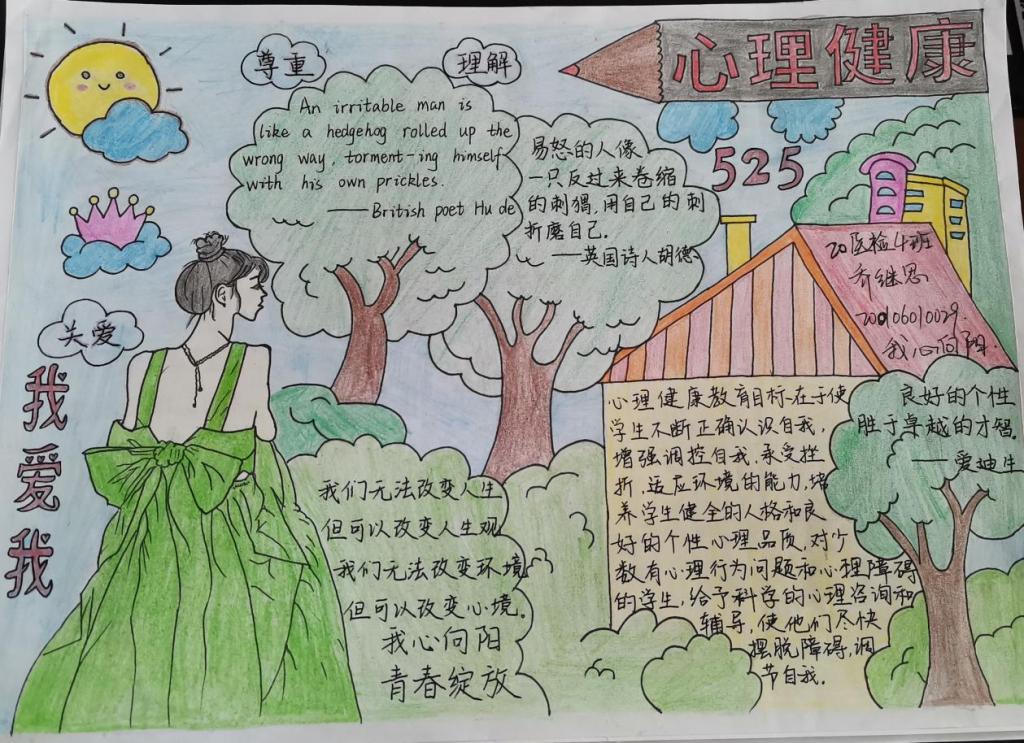 心理健康
尊重
理解
An irritable man is
like a hedgehog rolled up the
wrong way, torment-ing himself
with his own prickles.
——British poet Hu de
易怒的人像
一只反过来卷缩
的刺猬,用自己的刺
折磨自己.
——英国诗人胡德
525
20医检4班
乔继思
200106010029
我心向阳
关爱
我爱我
心理健康教育目标在于使
学生不断正确认识自我,
增强调控自我.承受挫
折,适应环境的能力,培
养学生健全的人格和良
好的个性心理品质,对少
数有心理行为问题和心理障碍
的学生,给予科学的心理咨询和
辅导,使他们尽快
摆脱障碍,调
节自我.
良好的个性
胜于卓越的才智.
——爱迪生
我们无法改变人生
但可以改变人生观
我们无法改变环境
但可以改变心境.
我心向阳
青春绽放